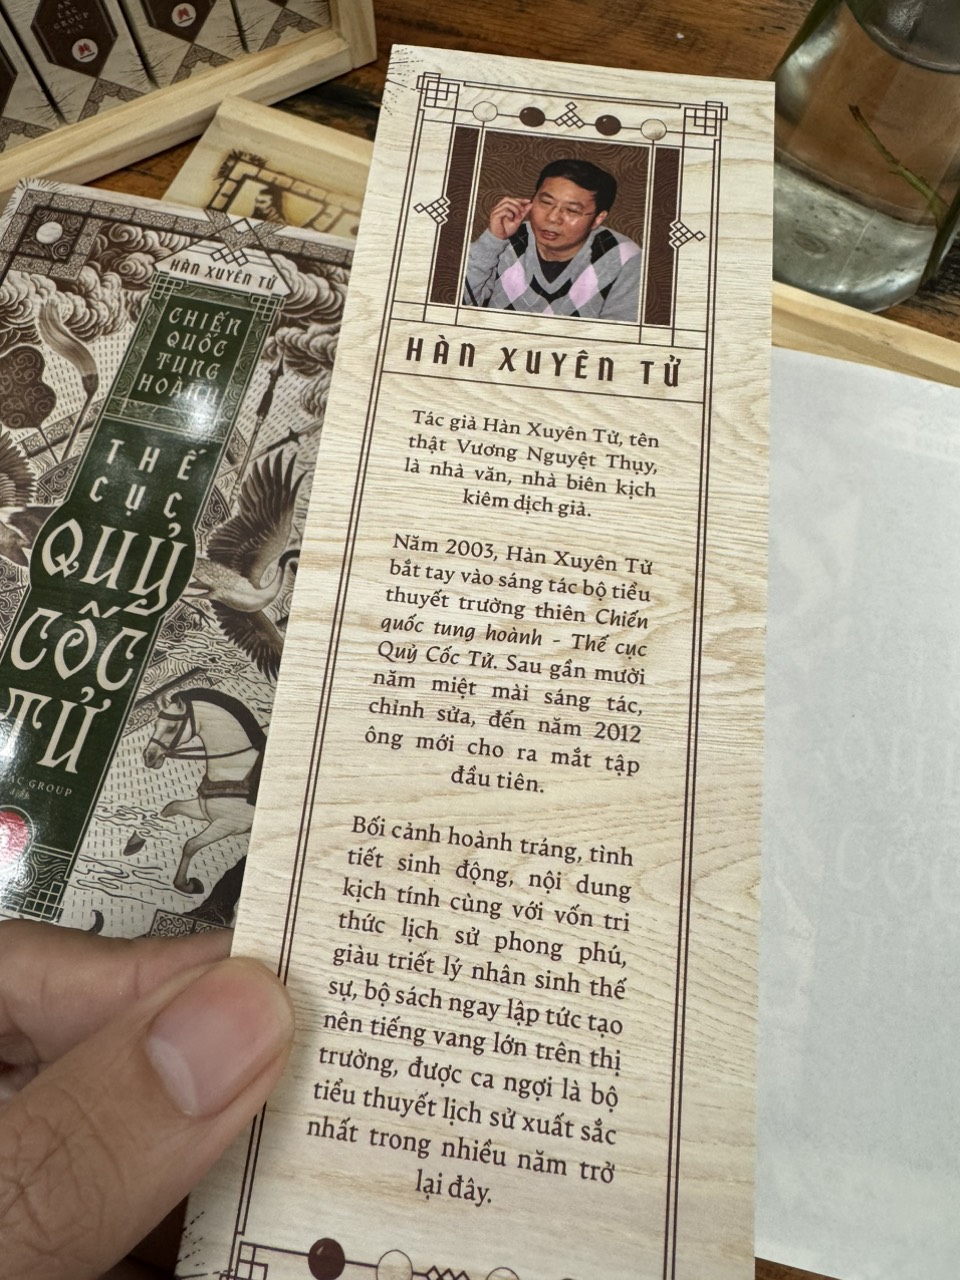 AN
LAC
GROUP
HÀN XUYÊN TỬ
CHIẾN
QUỐC
TUNG
HOÀNH
THẾ
CỤC
QUỶ
CỐC
TỬ
GROUP
dịch
HÀN XUYÊN TỬ
Tác giả Hàn Xuyên Tử, tên
thật Vương Nguyệt Thụy,
là nhà văn, nhà biên kịch
kiêm dịch giả.
Năm 2003, Hàn Xuyên Tử
bắt tay vào sáng tác bộ tiểu
thuyết trường thiên Chiến
quốc tung hoành - Thế cục
Quỷ Cốc Tử. Sau gần mười
năm miệt mài sáng tác,
chỉnh sửa, đến năm 2012
ông mới cho ra mắt tập
đầu tiên.
Bối cảnh hoành tráng, tình
tiết sinh động, nội dung
kịch tính cùng với vốn tri
thức lịch sử phong phú,
giàu triết lý nhân sinh thế
sự, bộ sách ngay lập tức tạo
nên tiếng vang lớn trên thị
trường, được ca ngợi là bộ
tiểu thuyết lịch sử xuất sắc
nhất trong nhiều năm trở
lại đây.